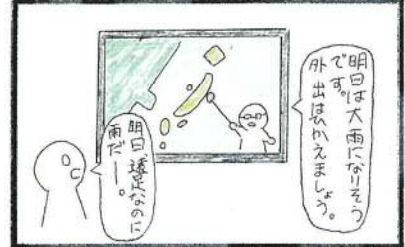 明日は大雨になりそう
です。
外出はひかえましょう。
明日遠足なのに
雨だー。